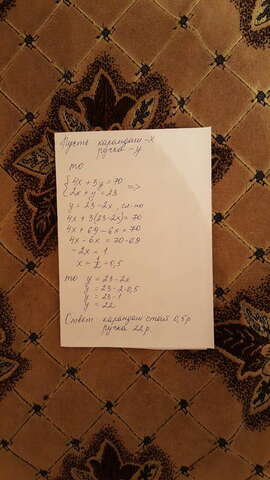 Пусть карандаш - x
ручка - y
то
{4x + 3y = 70
{2x + y = 23 =>
y = 23 - 2x, сл-но
4x + 3(23-2x) = 70
4x + 69 - 6x = 70
4x - 6x = 70-69
-2x = 1
x = 1/2 = 0,5
то y = 23 - 2x
y = 23 - 2·0,5
y = 23 - 1
y = 22
Ответ: карандаш стоит 0,5р
ручка 22р.